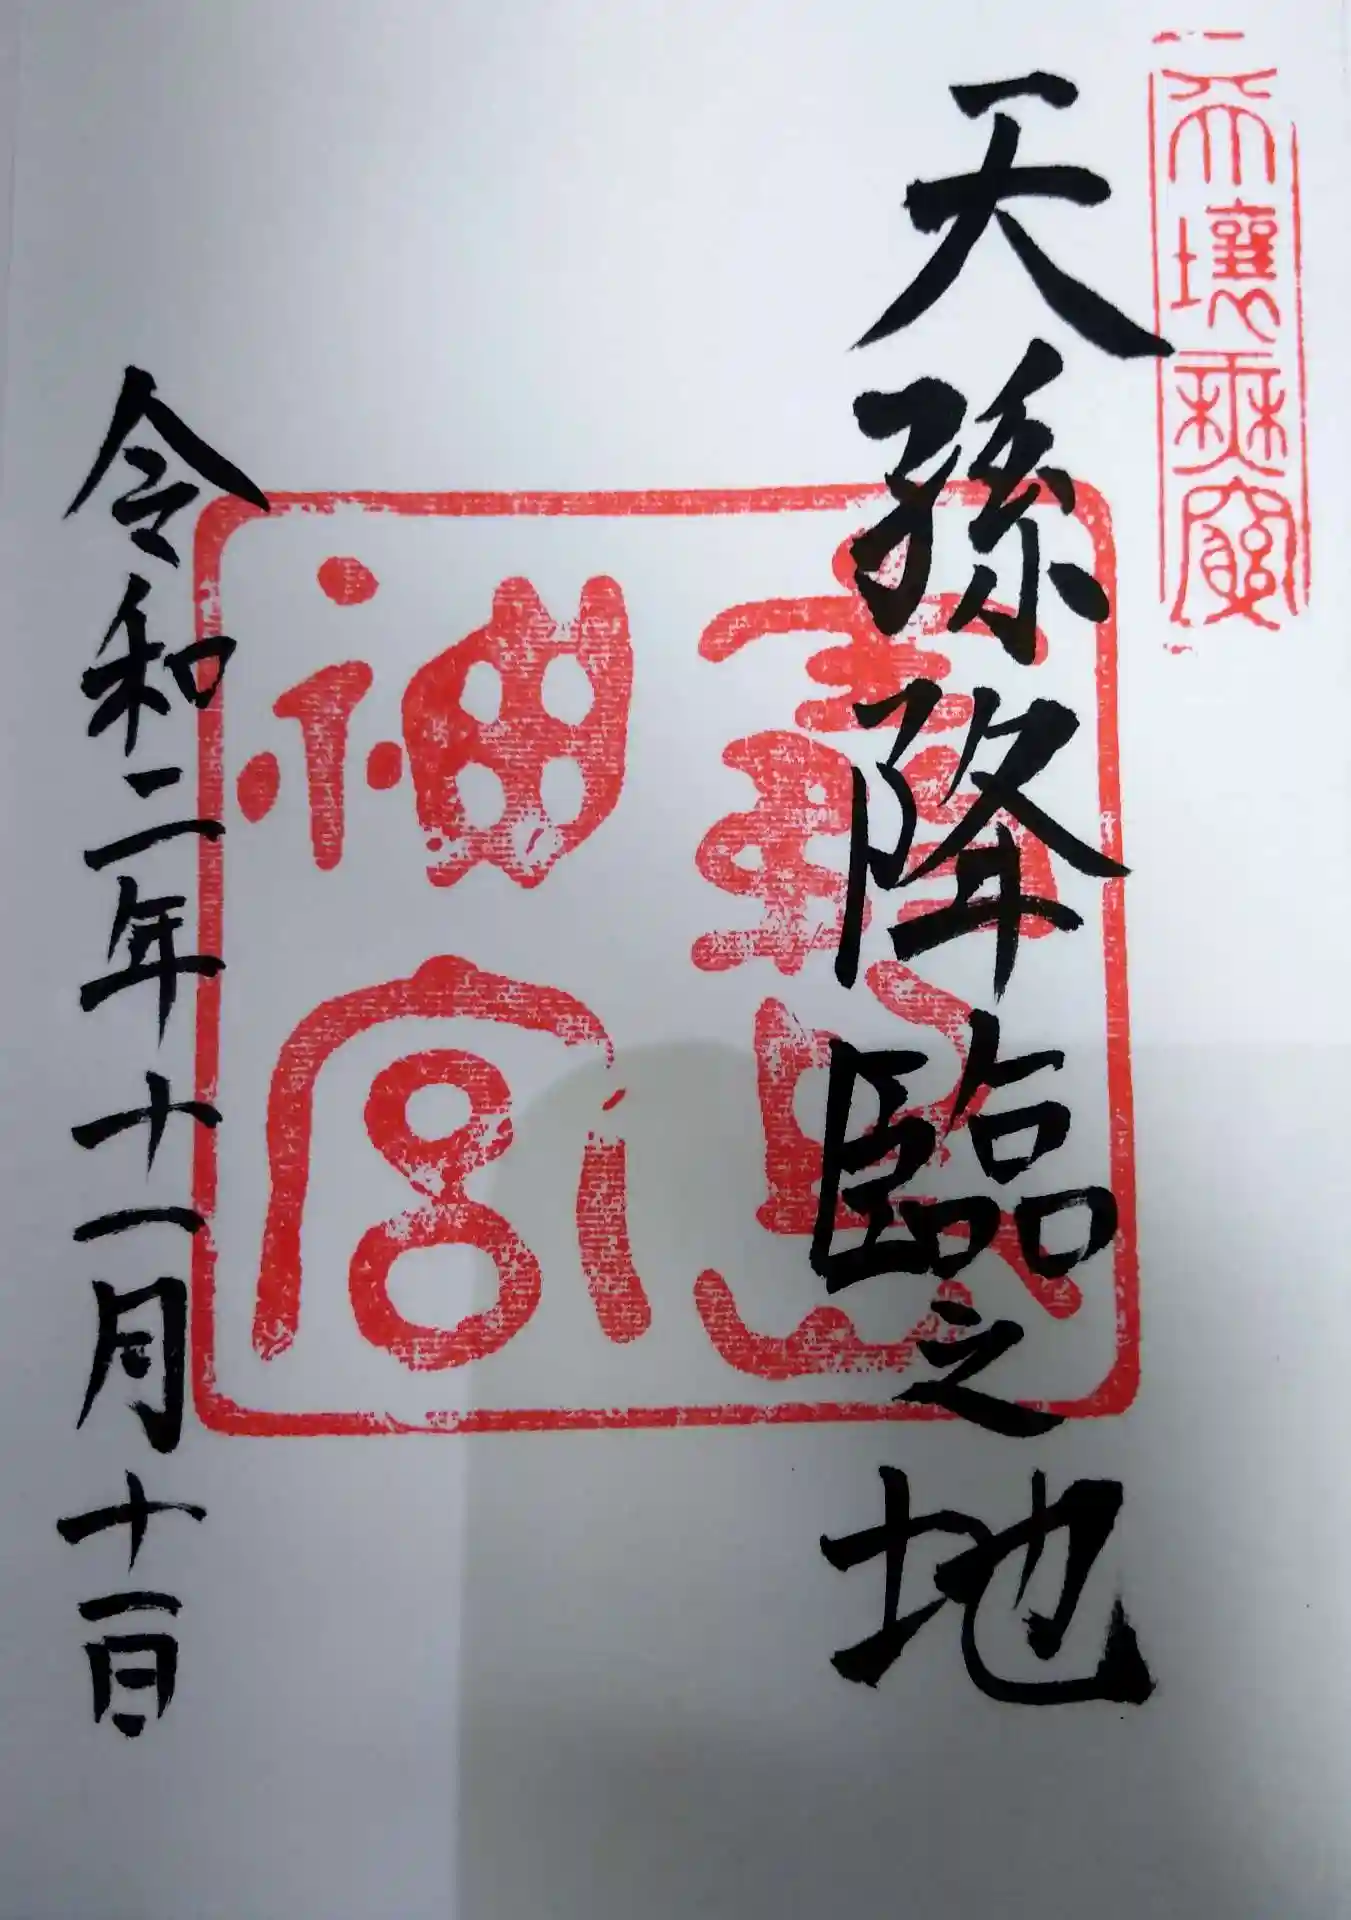 天壤無窮
天孫降臨之地
霧島
神宮
令和二年十一月十一日